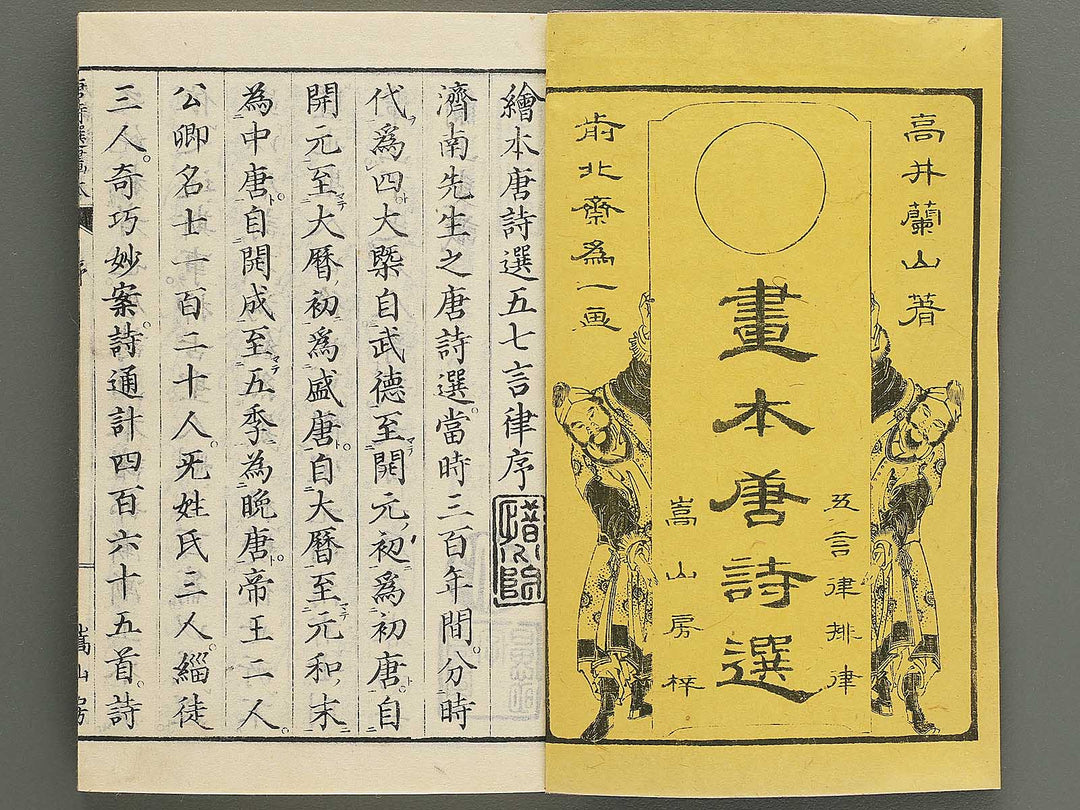 高井蘭山著
五言律排律
畫本唐詩選
嵩山房梓
前北斎為一画
繪本唐詩選五七言律序
濟南先生之唐詩選。當時三百年間。分時
代為四。大槩自武德至開元初為初唐。自
開元至大曆初為盛唐。自大曆至元和末
為中唐。自開成至五季為晚唐。帝王二人。
公卿名士一百二十人。无姓氏三人。緇徒
三人。奇巧妙案。詩通計四百六十五首。詩
嵩山房